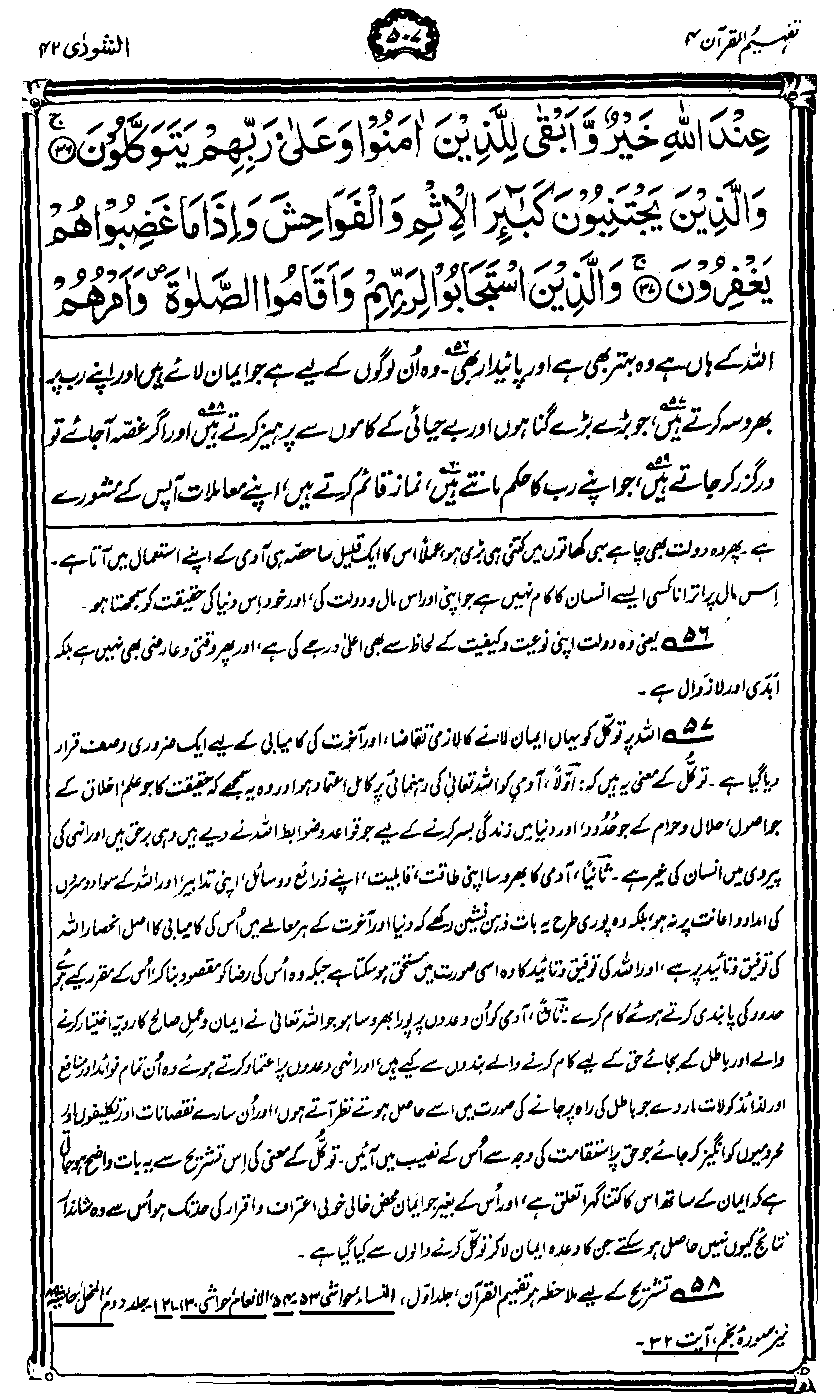 تفہیم القرآن ۴
۵۰۷
الشورٰی ۴۲
عِنْدَ اللّٰهِ خَيْرٌ وَّاَبْقٰى لِلَّذِيْنَ اٰمَنُوْا وَعَلٰى رَبِّهِمْ يَتَوَكَّلُوْنَ ۚ﴿۳۶﴾
وَالَّذِيْنَ يَجْتَنِبُوْنَ كَبٰٓئِرَ الْاِثْمِ وَالْفَوَاحِشَ وَاِذَا مَا غَضِبُوْا هُمْ
يَغْفِرُوْنَ ۚ﴿۳۷﴾ وَالَّذِيْنَ اسْتَجَابُوْا لِرَبِّهِمْ وَاَقَامُوا الصَّلٰوةَ ۪ وَاَمْرُهُمْ
اللہ کے ہاں ہے وہ بہتر بھی ہے اور پائیدار بھی۵۶۔ وہ اُن لوگوں کے لیے ہے جو ایمان لائے ہیں اور اپنے رب پر
بھروسہ کرتے ہیں۵۷، جو بڑے بڑے گناہوں اور بے حیائی کے کاموں سے پرہیز کرتے ہیں۵۸ اور اگر غصہ آجائے تو
درگزر کر جاتے ہیں۵۹، جو اپنے رب کا حکم مانتے ہیں۶۰، نماز قائم کرتے ہیں، اپنے معاملات آپس کے مشورے
ہے۔ پھر وہ دولت بھی چاہے بہی کھاتوں میں کتنی ہی بڑی ہو، عملاً اس کا ایک قلیل سا حصہ ہی آدمی کے اپنے استعمال میں آتا ہے۔
اِس مال پر اترانا کسی ایسے انسان کا کام نہیں ہے جو اپنی اور اس مال و دولت کی، اور خود اِس دنیا کی حقیقت کو سمجھتا ہو۔
۵۶ یعنی وہ دولت اپنی نوعیت و کیفیت کے لحاظ سے بھی اعلیٰ درجے کی ہے، اور پھر وقتی و عارضی بھی نہیں ہے بلکہ
اَبَدی اور لازوال ہے۔
۵۷ اللہ پر توکُّل کو یہاں ایمان لانے کا لازمی تقاضا، اور آخرت کی کامیابی کے لیے ایک ضروری وصف قرار
دیا گیا ہے۔ توکُّل کے معنی یہ ہیں کہ: اَوَّلاً، آدمی کو اللہ تعالیٰ کی رہنمائی پر کامل اعتماد ہو اور وہ یہ سمجھے کہ حقیقت کا جو علم، اخلاق کے
جو اصول، حلال و حرام کے جو حُدُود، اور دنیا میں زندگی بسر کرنے کے لیے جو قواعد و ضوابط اللہ نے دیے ہیں وہی برحق ہیں اور انہی کی
پیروی میں انسان کی خیر ہے۔ ثانیاً، آدمی کا بھروسا اپنی طاقت، قابلیت، اپنے ذرائع و وسائل، اپنی تدابیر، اور اللہ کے سوا دوسروں
کی امداد و اعانت پر نہ ہو، بلکہ وہ پوری طرح یہ بات ذہن نشین رکھے کہ دنیا اور آخرت کے ہر معاملے میں اُس کی کامیابی کا اصل انحصار اللہ
کی توفیق و تائید پر ہے، اور اللہ کی توفیق و تائید کا وہ اسی صورت میں مستحق ہو سکتا ہے جبکہ وہ اُس کی رضا کو مقصود بنا کر، اُس کے مقرر کیے ہوئے
حدود کی پابندی کرتے ہوئے کام کرے۔ ثالثاً، آدمی کو اُن وعدوں پر پورا بھروسا ہو جو اللہ تعالیٰ نے ایمان و عملِ صالح کا رویّہ اختیار کرنے
والے اور باطل کے بجائے حق کے لیے کام کرنے والے بندوں سے کیے ہیں، اور انہی وعدوں پر اعتماد کرتے ہوئے وہ اُن تمام فوائد اور منافع
اور لذائذ کو لات مار دے جو باطل کی راہ پر جانے کی صورت میں اسے حاصل ہوتے نظر آتے ہوں، اور اُن سارے نقصانات اور تکلیفوں اور
محرومیوں کو انگیز کر جائے جو حق پر استقامت کی وجہ سے اُس کے نصیب میں آئیں۔ توکُّل کے معنی کی اِس تشریح سے یہ بات واضح ہو جاتی
ہے کہ ایمان کے ساتھ اس کا کتنا گہرا تعلق ہے، اور اُس کے بغیر جو ایمان محض خالی خولی اعتراف و اقرار کی حد تک ہو اُس سے وہ شاندار
نتائج کیوں نہیں حاصل ہو سکتے جن کا وعدہ ایمان لا کر توکّل کرنے والوں سے کیا گیا ہے۔
۵۸ تشریح کے لیے ملاحظہ ہو تفہیم القرآن، جلد اوّل، النساء، حواشی ۵۳-۵۴، الانعام، حواشی ۱۳۰-۱۳۱، جلد دوم، النحل، حاشیہ
نیز سورۂ نجم، آیت ۳۲۔